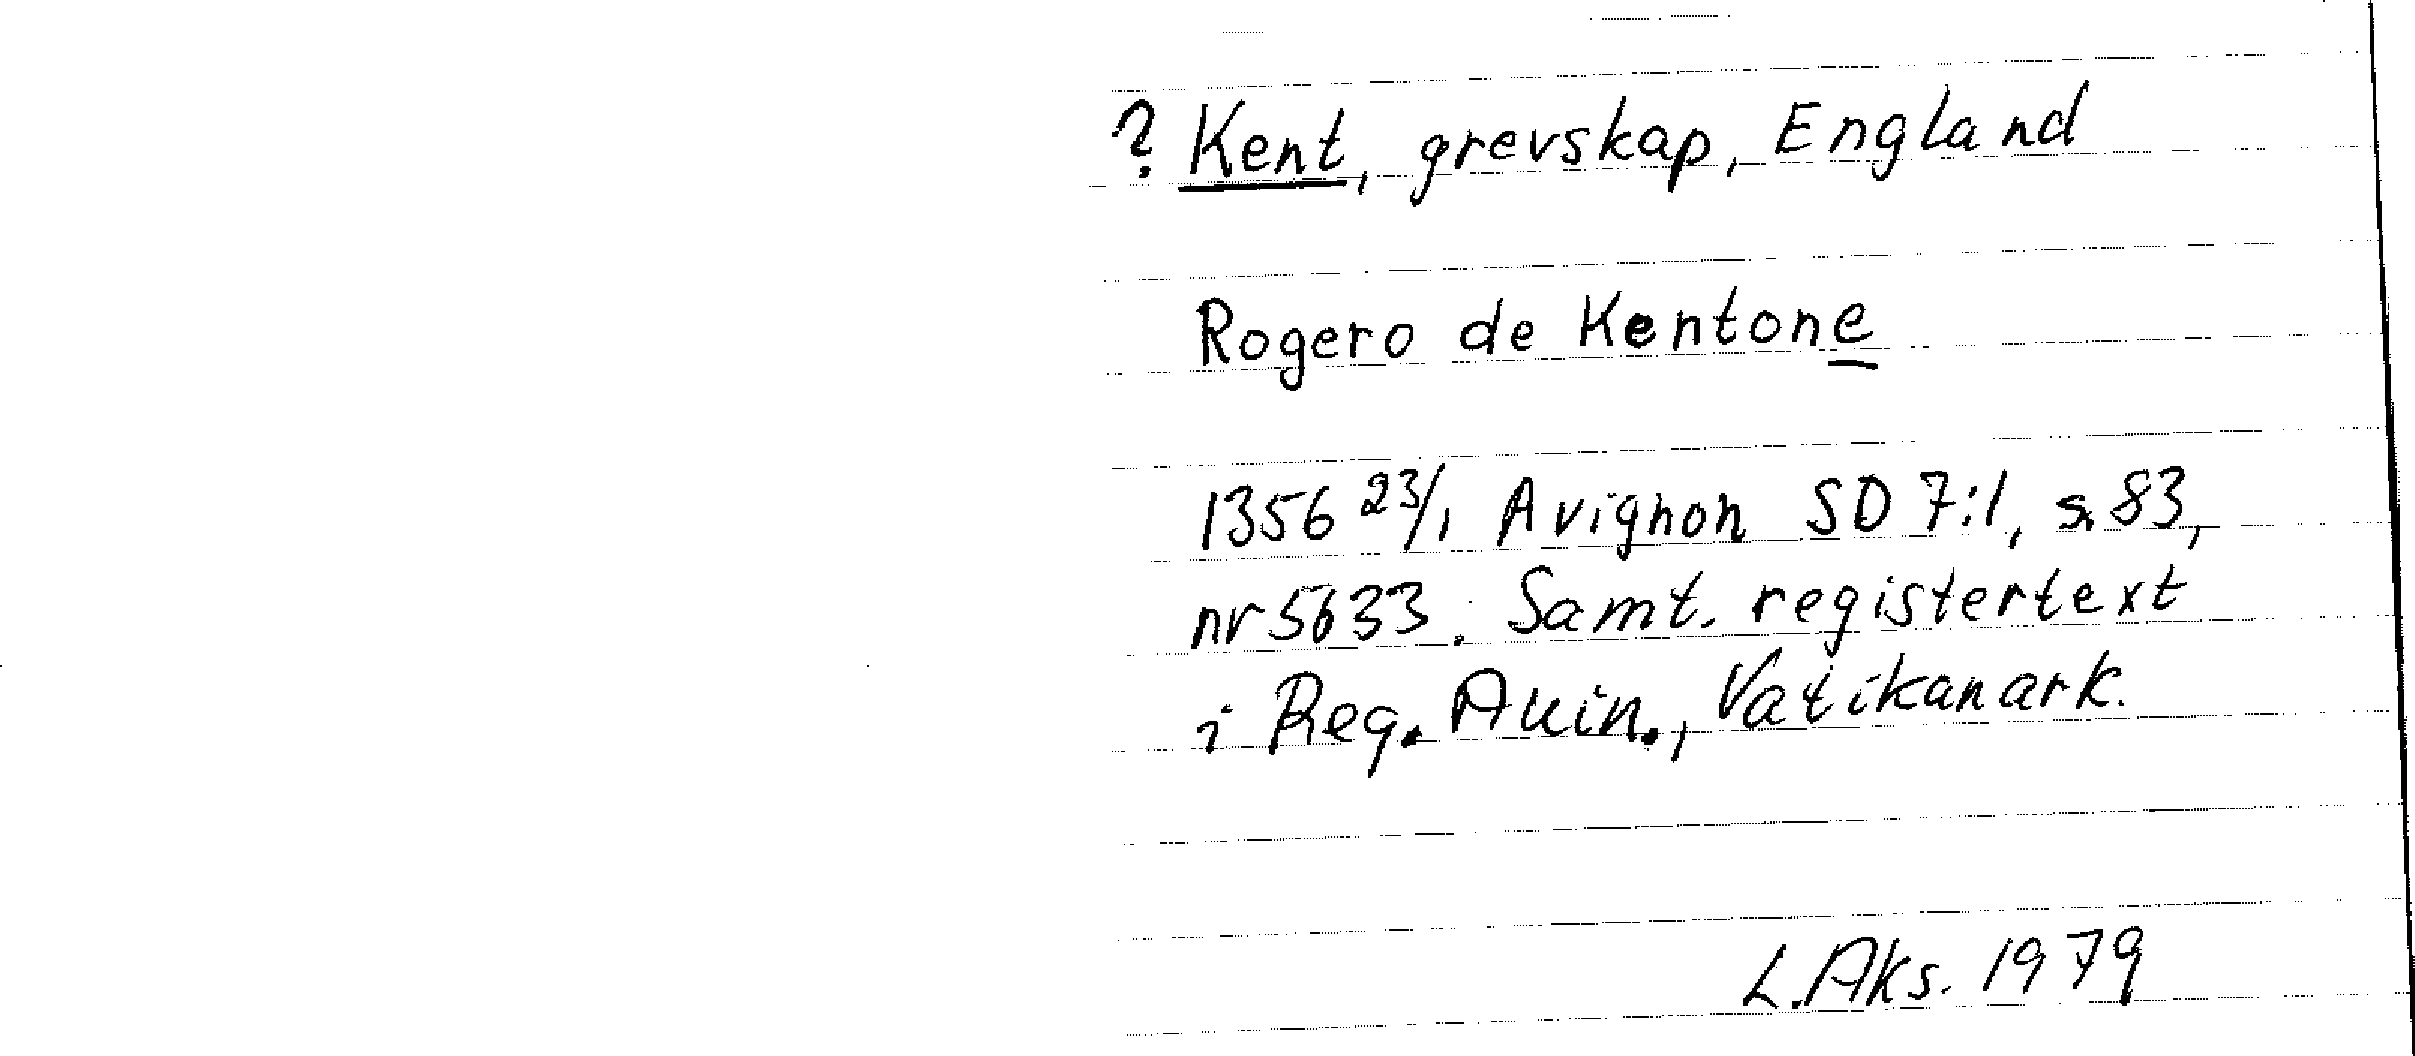 ? Kent, grevskap, England
Rogero de Kentone
1356 23/1 Avignon SD 7:1, s. 83,
nr 5633. Samt. registertext
i Reg. Auin., Vatikanark.
L. Aks. 1979